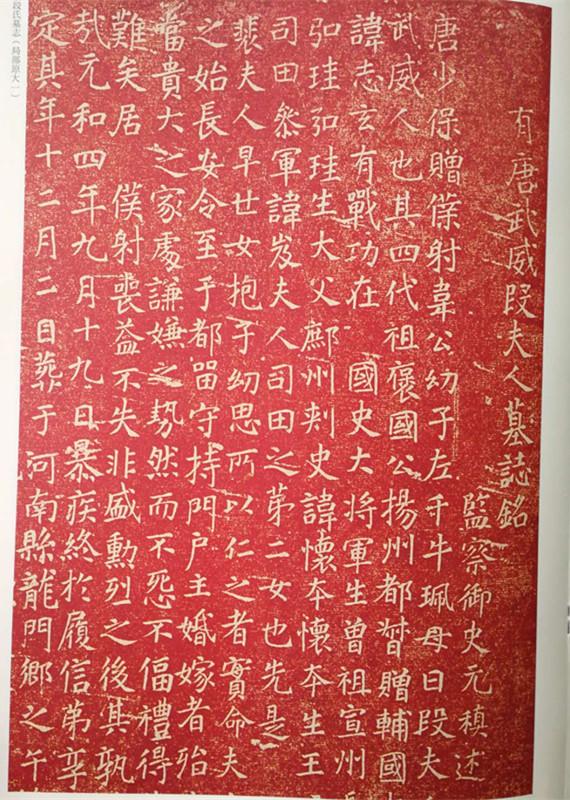 有唐武威段夫人墓誌銘
監察御史元稹述
唐少保贈僕射韋公幼子左千牛珮母曰段夫人
武威人也其四代祖褒國公揚州都督贈輔國
諱志玄有戰功在 國史大將軍生曾祖宣州
弘珪弘珪生大父鄜州刺史諱懷本懷本生王
司田參軍諱岌夫人司田之第二女也先是
裴夫人早世女抱子幼思所以仁之者實命夫
之始長安令至于都留守持門户主婚嫁者殆
當貴大之家處謙嫌之勢然而不怨不偪禮得
難矣居 僕射喪益不失非盛勳烈之後其孰
哉元和四年九月十九日暴疾終於履信第
定其年十二月二日葬于河南縣龍門鄉之午
段氏墓志（局部原大一）